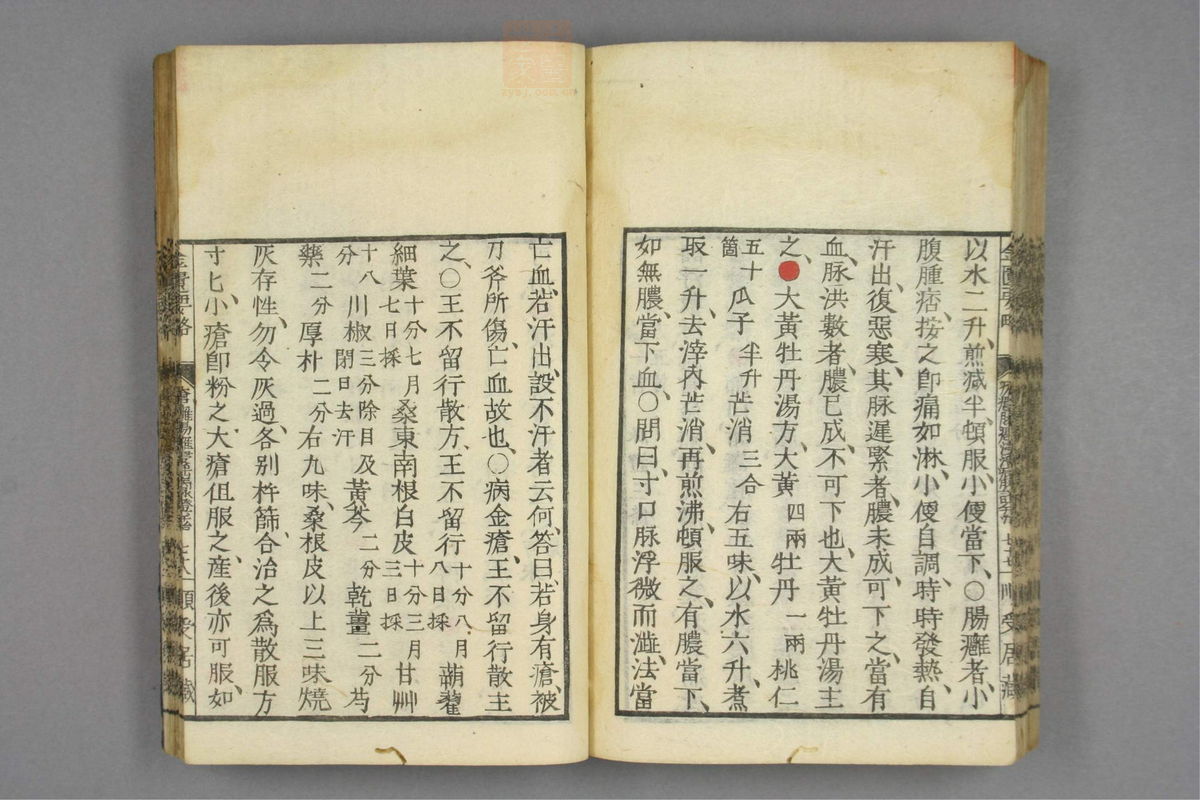 以水二升、煎減半、頓服、小便當下、○腸癰者、小
腹腫痞、按之卽痛如淋、小便自調、時時發熱、自
汗出、復惡寒、其脉遲緊者、膿未成、可下之、當有
血、脉洪數者、膿已成、不可下也、大黃牡丹湯主
之、 大黃牡丹湯方、大黃四兩牡丹一兩桃仁
五十箇瓜子半升芒消三合右五味、以水六升、煮
取一升、去滓、內芒消、再煎沸、頓服之、有膿當下、
如無膿、當下血、○問曰、寸口脉浮微而澁、法當
亡血、若汗出、設不汗者云何、答曰、若身有瘡、被
刀斧所傷、亡血故也、○病金瘡、王不留行散主
之、○王不留行散方、王不留行十分八月八日採蒴藋
細葉十分七月七日採桑東南根白皮十分三月三日採甘艸
十八分川椒三分除目及閉口去汗黃芩二分乾薑二分芍
藥二分厚朴二分右九味、桑根皮以上三味燒
灰存性、勿令灰過、各别杵篩、合治之爲散、服方
寸匕、小瘡卽粉之、大瘡但服之、產後亦可服、如
金匱要略
七十八
順受居藏